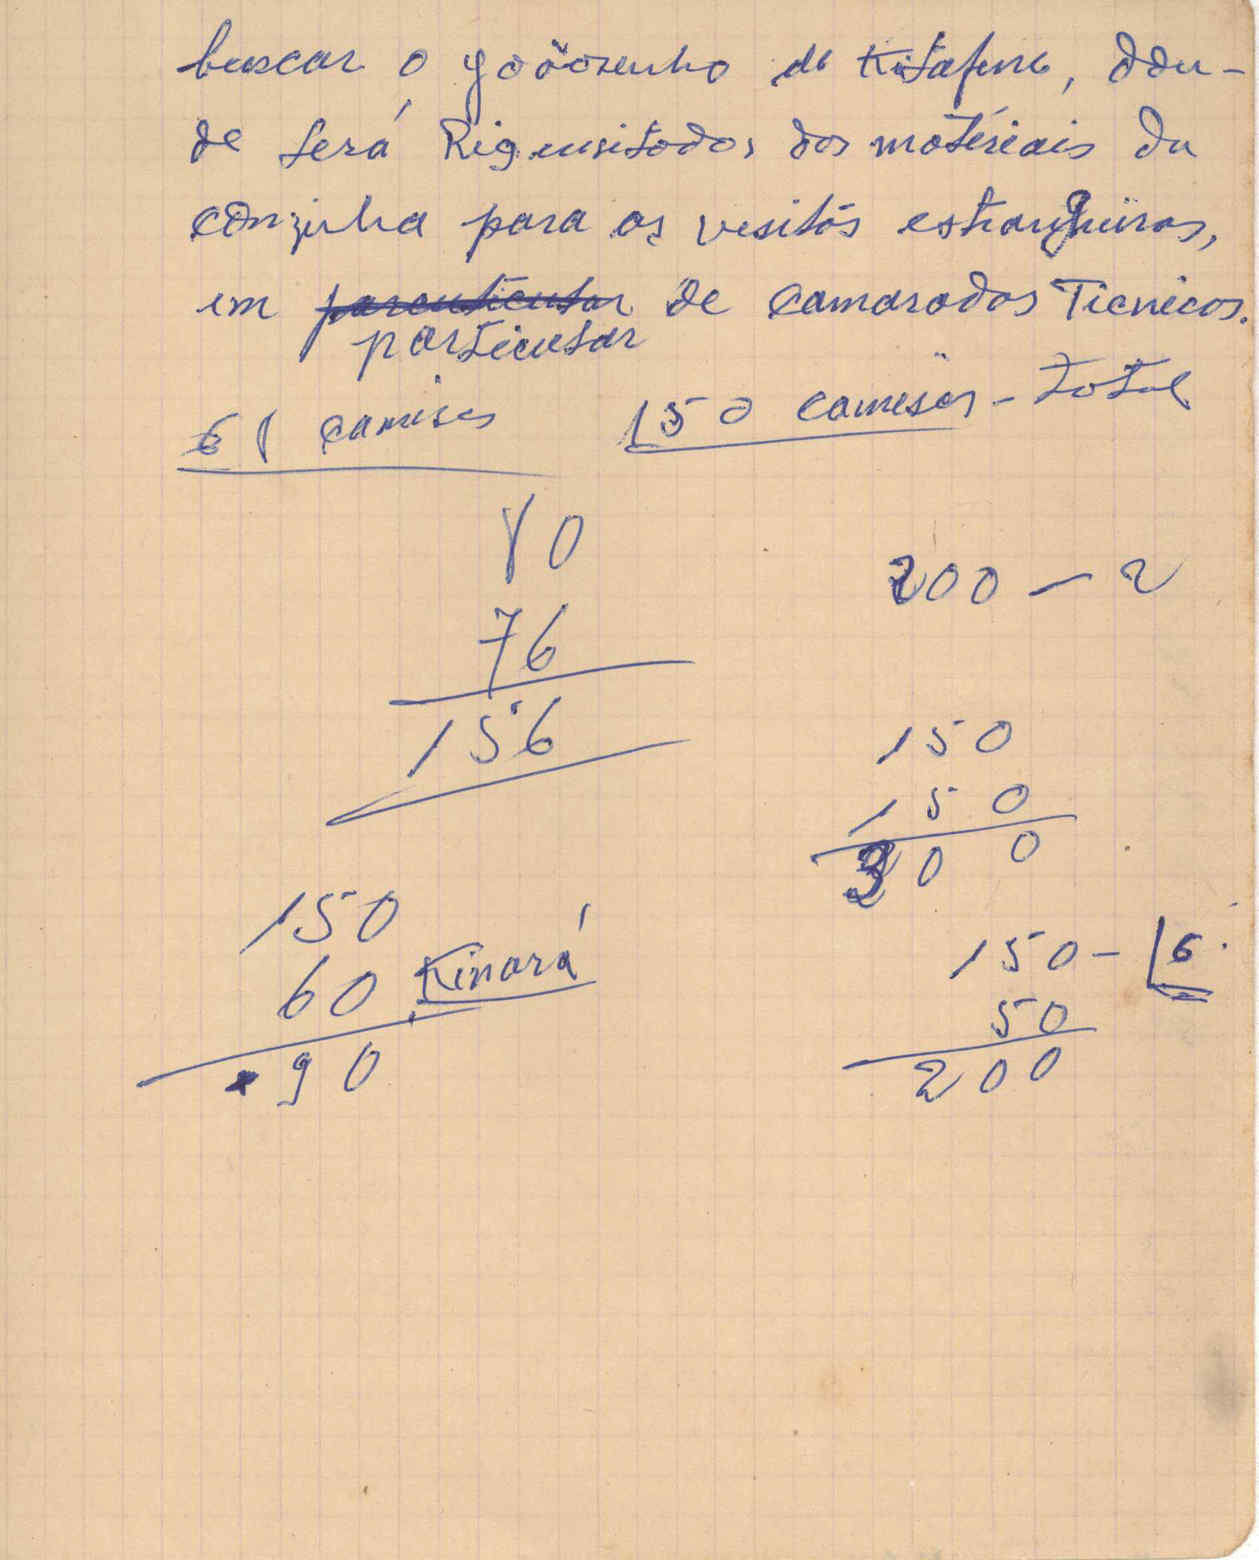 buscar o Joãosenho de Kitafene, don-
de será Riqensitados dos matéreais du
conzinha para os vesitas estrangueiros,
em particular de camaradas Ticnicos.
68 camisas 150 camisas - total
80
76
156
200 - 2
150
150
300
150
60 Kinará
90
150 - 6
50
200